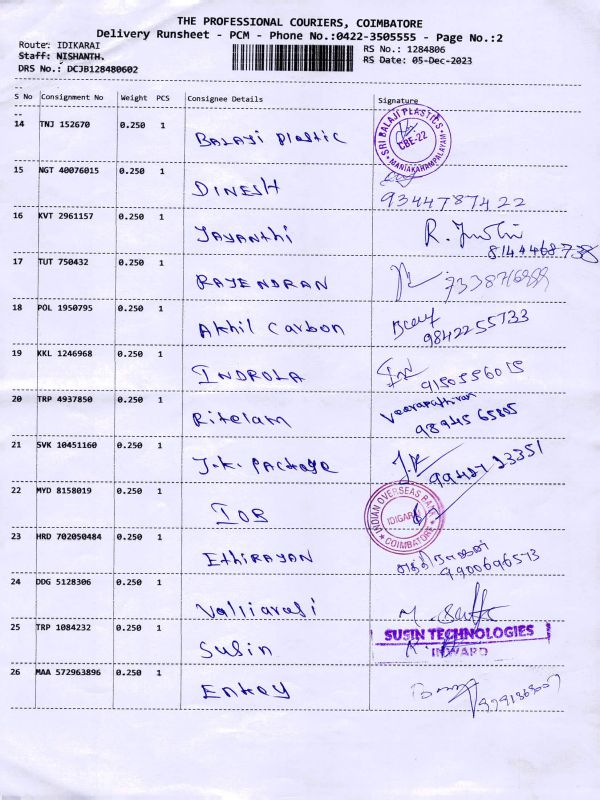 THE PROFESSIONAL COURIERS, COIMBATORE
Delivery Runsheet - PCM - Phone No.:0422-3505555 - Page No.:2
Route: IDIKARAI RS No.: 1284806
Staff: NISHANTH. RS Date: 05-Dec-2023
DRS No.: DCJB128480602
S No Consignment No Weight PCS Consignee Details Signature
14 TNJ 152670 0.250 1 Balaji plastic SRI BALAJI PLASTICS CBE-22 MANIAKARAMPALAYAM
15 NGT 40076015 0.250 1 DINESH 9344787422
16 KVT 2961157 0.250 1 JAYANTHI R. 8144468738
17 TUT 750432 0.250 1 RAJENDRAN
18 POL 1950795 0.250 1 Akhil Carbon 9842255733
19 KKL 1246968 0.250 1 INDROLA 9150556015
20 TRP 4937850 0.250 1 Veerapathiran
21 SVK 10451160 0.250 1 J.K. Package J.K
22 MYD 8158019 0.250 1 IOB INDIAN OVERSEAS BANK COIMBATORE
23 HRD 702050484 0.250 1 Ethirayan 9900696573
24 DDG 5128306 0.250 1 Valliarasi
25 TRP 1084232 0.250 1 Susin SUSIN TECHNOLOGIES
INWARD
26 MAA 572963896 0.250 1 Enkey